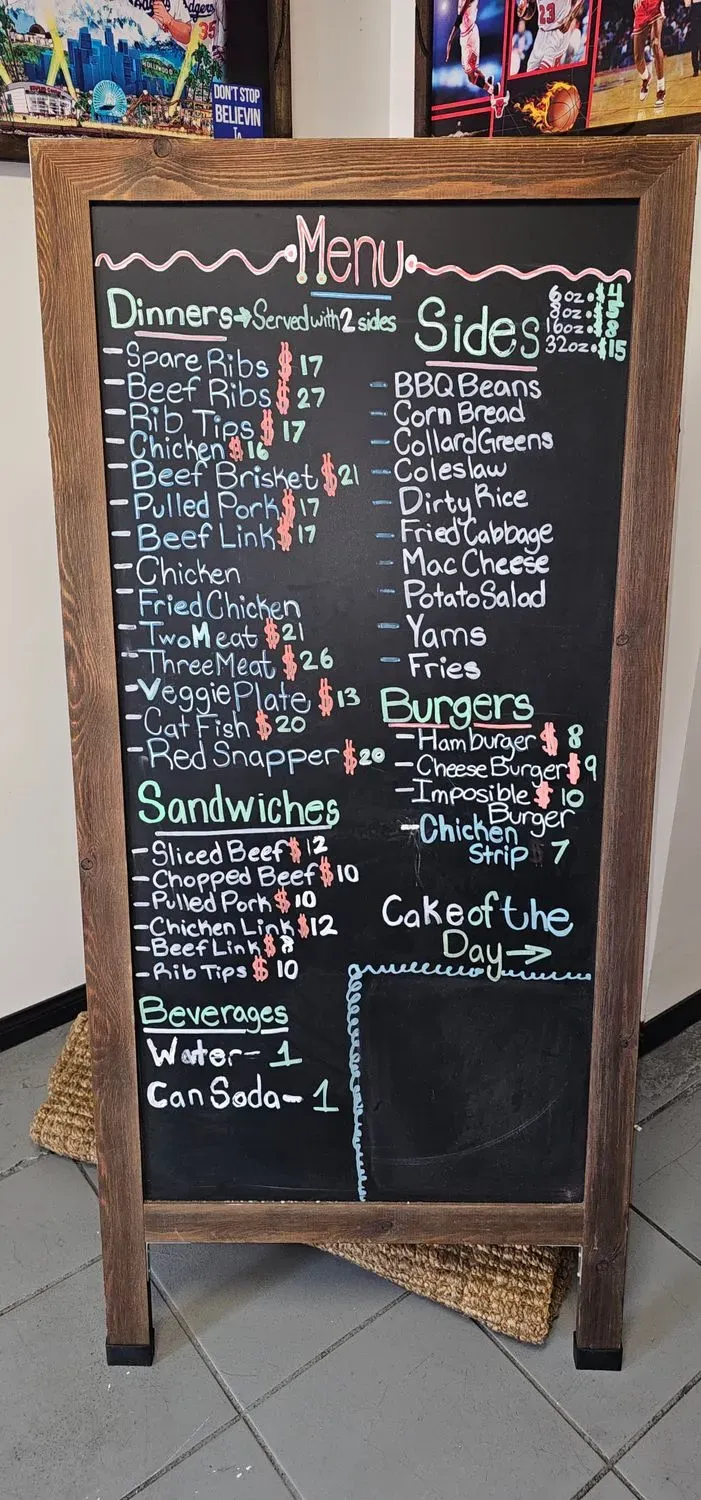 Dodgers
35
DON'T STOP
BELIEVIN
To
23
Menu
Dinners→Served with 2 sides
- Spare Ribs $17
- Beef Ribs $27
- Rib Tips $17
- Chicken $16
- Beef Brisket $21
- Pulled Pork $17
- Beef Link $17
- Chicken
- Fried Chicken
- Two Meat $21
- Three Meat $26
- Veggie Plate $13
- Cat Fish $20
- Red Snapper $20
Sandwiches
- Sliced Beef $12
- Chopped Beef $10
- Pulled Pork $10
- Chicken Link $12
- Beef Link $8
- Rib Tips $10
Beverages
Water- 1
Can Soda- 1
Sides
6oz.$4
8oz.$5
16oz.$8
32oz.$15
- BBQ Beans
- Corn Bread
- Collard Greens
- Coleslaw
- Dirty Rice
- Fried Cabbage
- Mac Cheese
- Potato Salad
- Yams
- Fries
Burgers
- Hamburger $8
- Cheese Burger $9
- Imposible $10
Burger
- Chicken
Strip $7
Cake of the
Day→